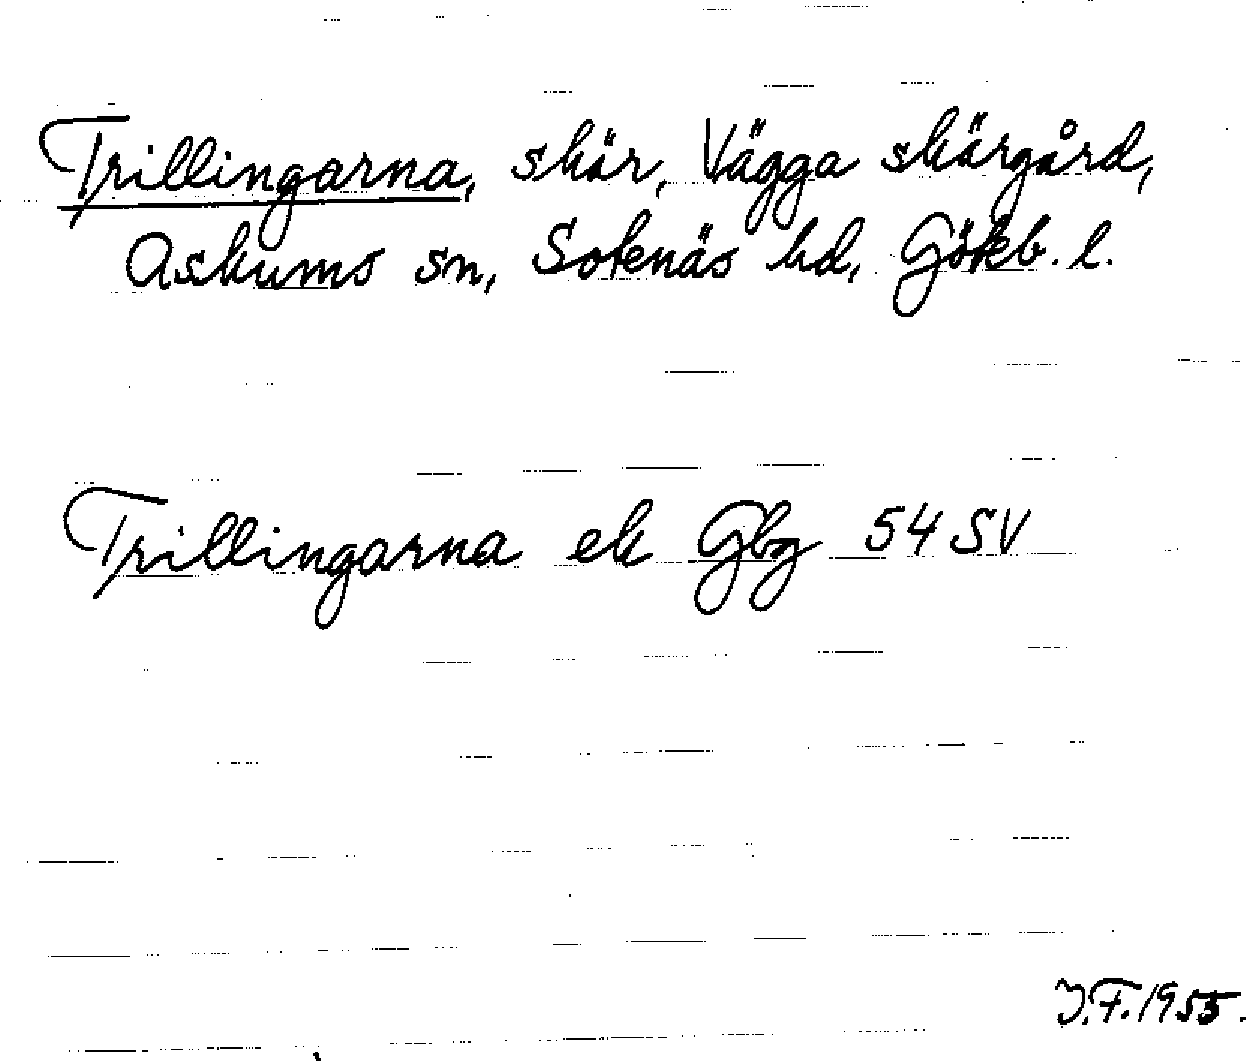 Trillingarna, skär, Vägga skärgård,
Askums sn, Sotenäs hd, Göteb. l.
Trillingarna ek Gbg 54 SV
J.F. 1955.